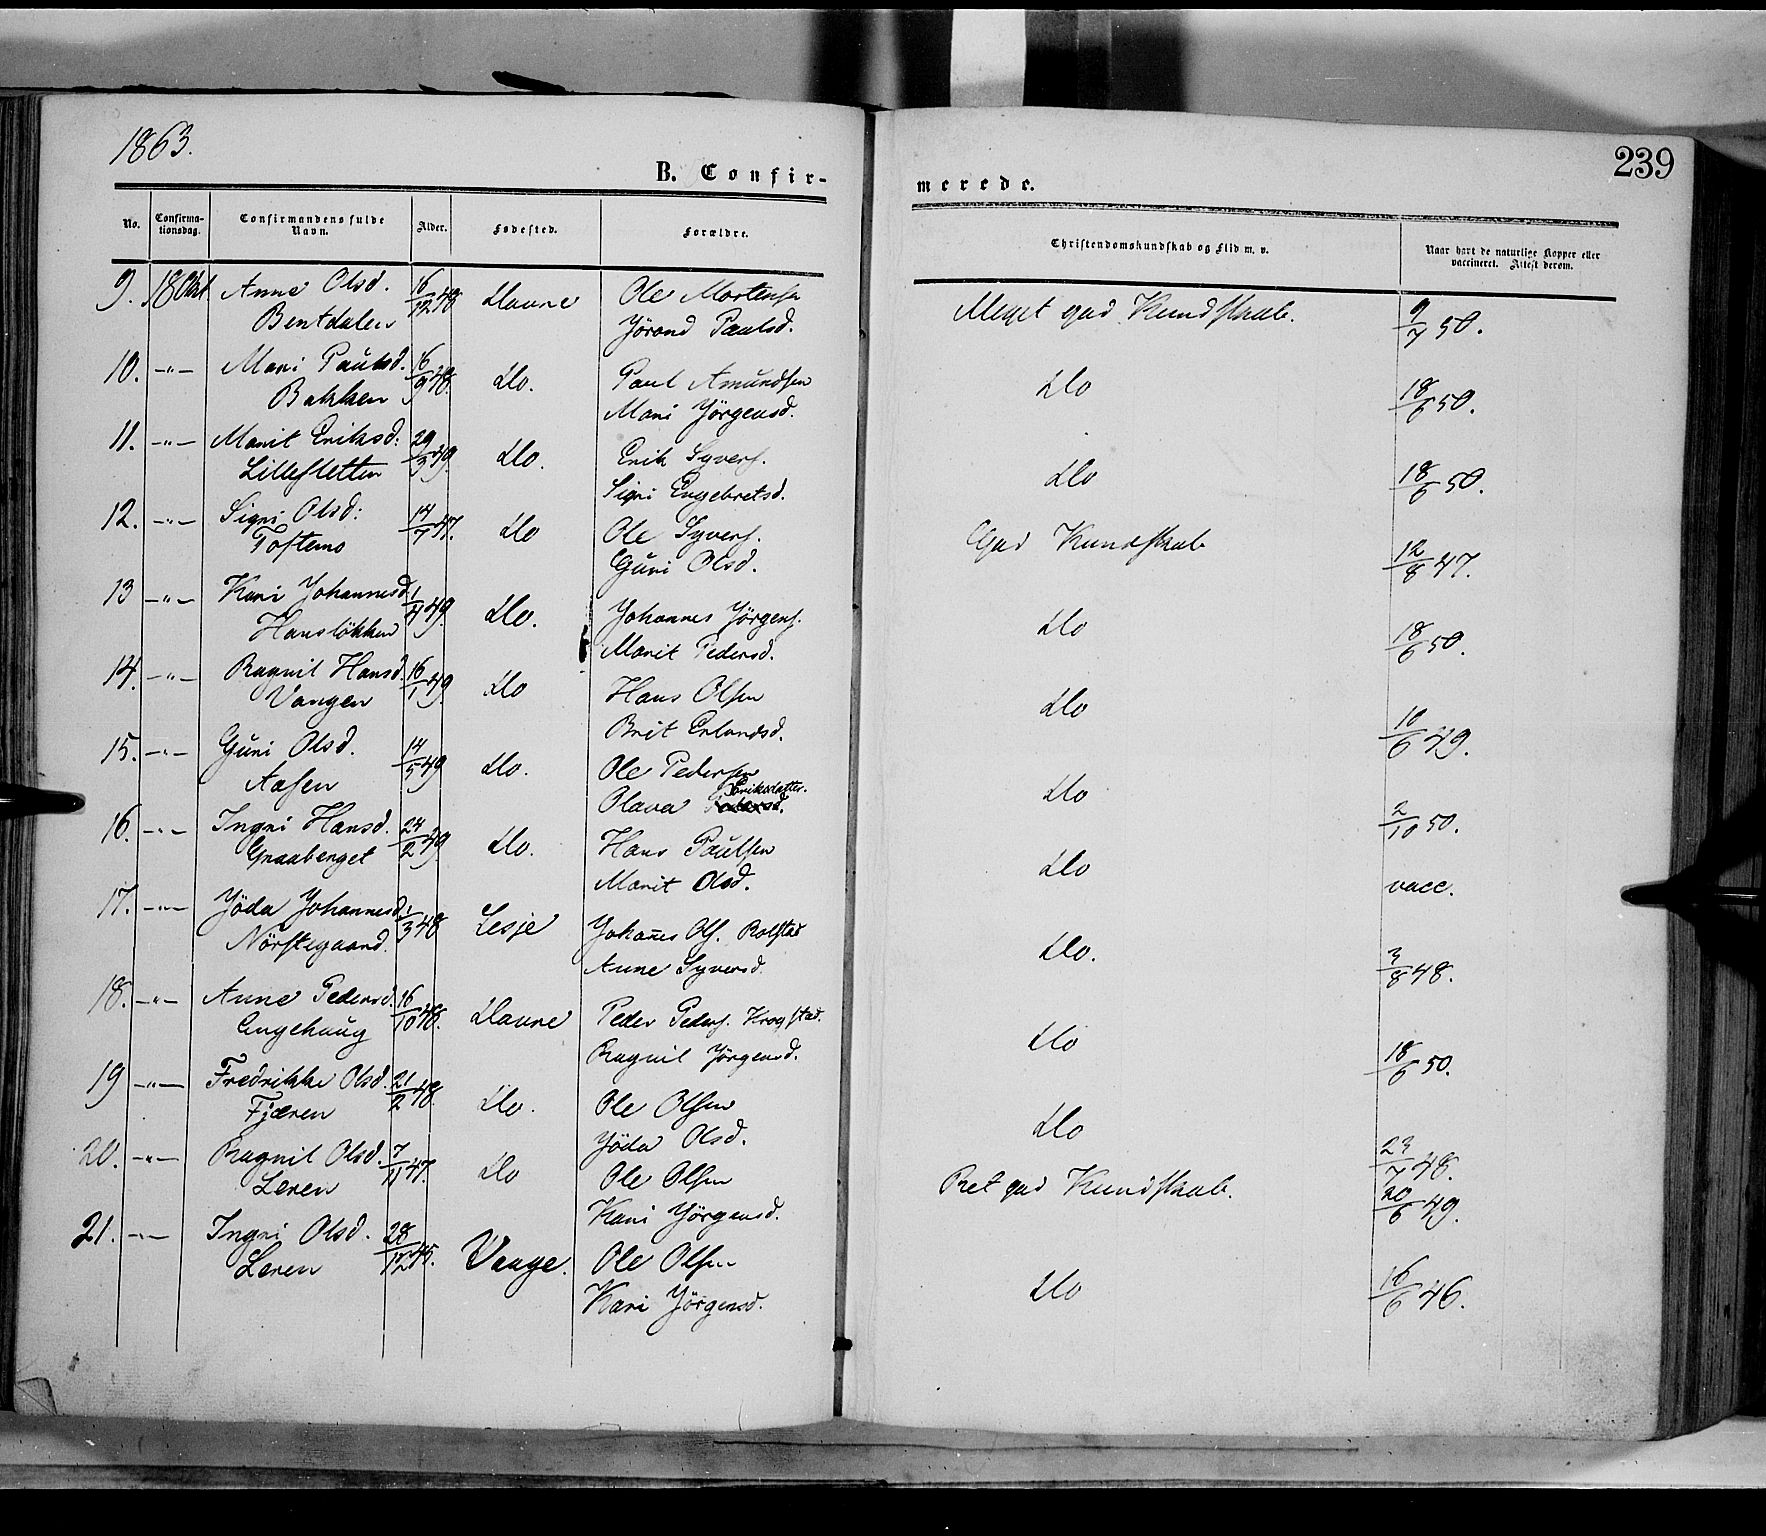 1863.
B. Confir-
No.
Confirma-
tionsdag.
Confirmandens fulde
Navn.
Alder.
Fødested.
Forældre.
9. 18 Okt Anne Olsd. 16/12 48 Davne Ole Mortensen
Bentdalen Jörand Paulsd.
10. -"- Mari Paulsd. 16/9 48. Do. Paul Amundsen
Bakken Mari Jörgensd.
11. -"- Marit Eriksd: 29/3 49. Do. Erik Syvers.
Lillesletten Signi Engebretsd.
12. -"- Signi Olsd: 14/7 47. Do Ole Syvers.
Toftemo Guni Olsd.
13 -"- Kari Johannesd. 1/4 49. Do. Johannes Jörgens.
Hanslökken Marit Pedersd.
14. -"- Ragnil Hansd. 16/1 49. Do Hans Olsen
Vangen Brit Erlandsd.
15. -"- Guni Olsd. 14/5 49 Do. Ole Pedersen
Aasen Olava Eriksdatter.
16. -"- Ingri Hansd. 24/2 49 Do. Hans Paulsen
Graaberget Marit Olsd.
17. -"- Jöda Johannesd. 1/3 48 Lesje Johan̄es Ols. Rolstad
Nörstegaard. Anne Syversd.
18. -"- Anne Pedersd. 16/10 48. Davne Peder Peders. Krogstad.
Engehaug Ragnil Jörgensd.
19 -"- Fredrikke Olsd. 21/2 48. Do. Ole Olsen
Fjæren Jöda Olsd.
20. -"- Ragnil Olsd. 7/11 47. Do Ole Olsen
Leren Kari Jörgensd.
21. -"- Ingri Olsd. 28/12 45. Vaage. Ole Olsen
Leren Kari Jörgensd.
239
merede.
Christendomskundskab og Flid m. v.
Naar havt de naturlige Kopper eller
vaccineret. Attest derom.
Meget god Kundskab. 9/7 50.
Do 18/6 50.
Do 18/6 50.
God Kundskab 12/8 47.
Do 18/6 50.
Do 10/6 49.
Do 2/10 50.
Do vacc.
Do. 3/8 48.
Do 18/6 50.
Do 23/7 48.
Ret god Kundskab. 20/6 49.
Do 16/6 46.